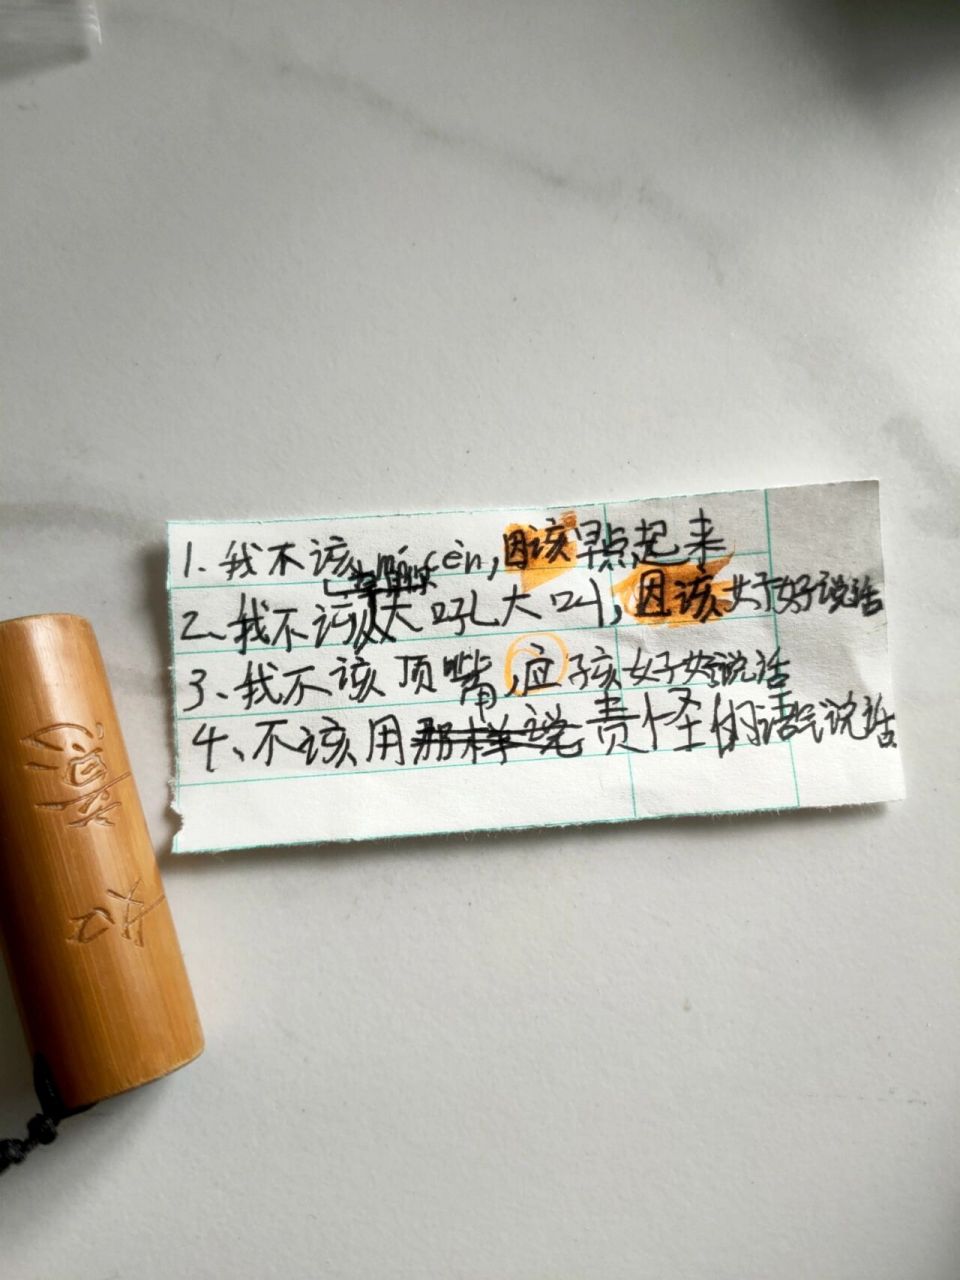 1. 我不该 mó cèn, 因该早点起来
2、我不该大吼大叫, 因该好好说话
3、我不该顶嘴, 应孩好好说话
4、不该用责怪的语气说话